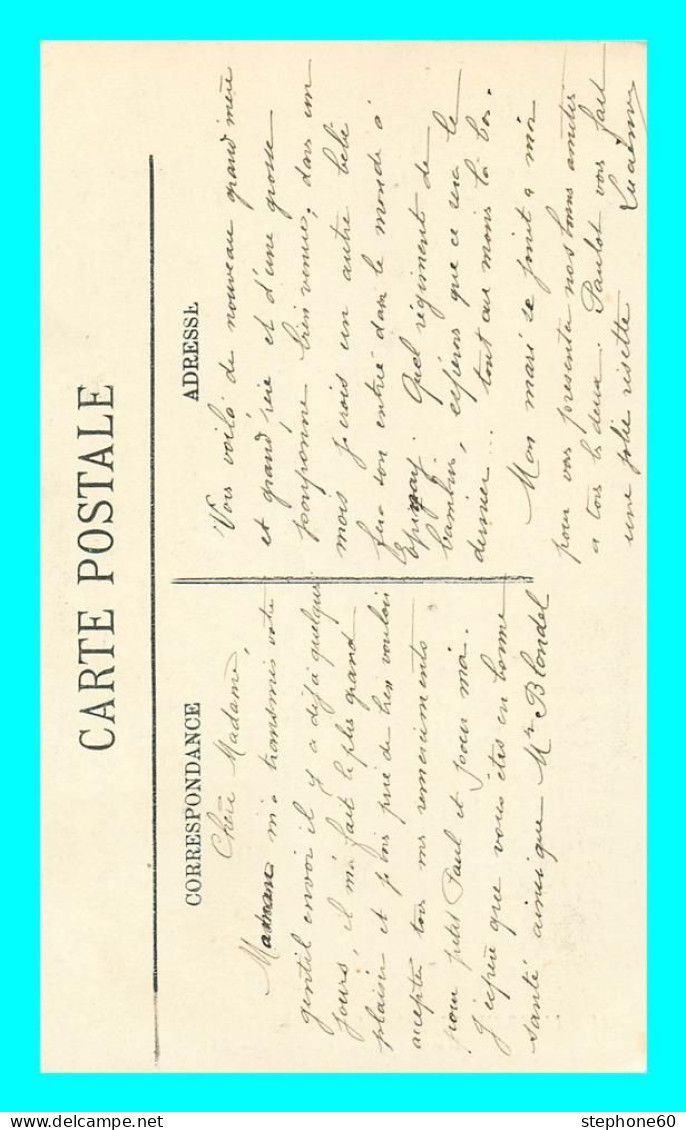 CARTE POSTALE
CORRESPONDANCE
Chère Madame,
Maman m'a transmis votre
gentil envoi il y a déjà quelques
jours, il m'a fait le plus grand
plaisir et vous prie de bien vouloir
accepter tous mes remerciments
pour petit Paul et pour moi.
J'espère que vous êtes en bonne
santé ainsi que Mr Blondel
ADRESSE
Vous voilà de nouveau grand'mère
et grand père et d'une grosse
pouponne bien venue, dans un
mois je crois un autre bébé
fera son entrée dans le monde à
Epinay. Quel régiment de
bambins, espérons que ce sera le
dernier... tout au moins là bas.
Mon mari se joint à moi
pour vous presenter nos bonnes amitiés
a tous les deux. Paulot vous fait
une jolie risette
stephone60